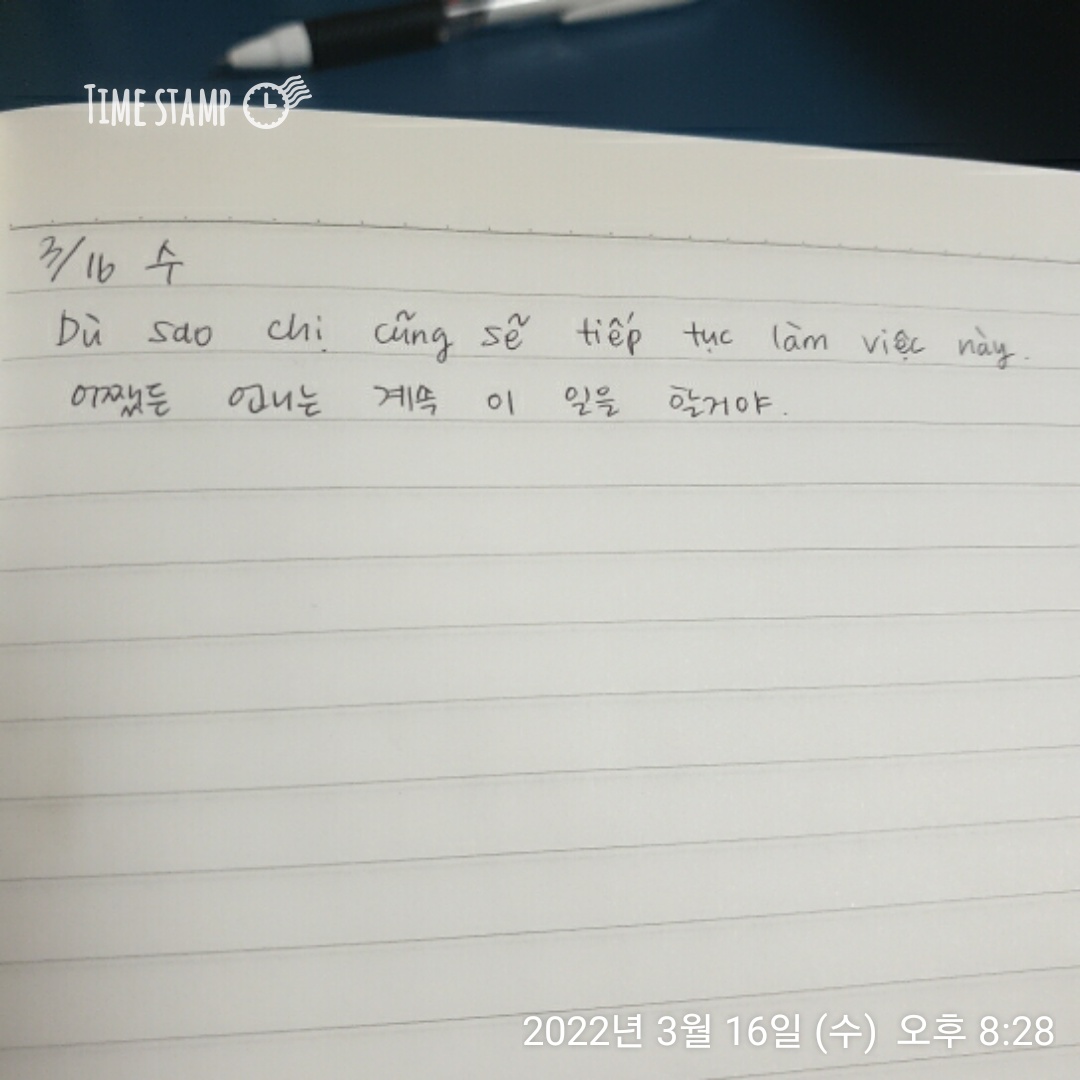 TIME STAMP
3/16 수
Dù sao chị cũng sẽ tiếp tục làm việc này.
어쨌든 언니는 계속 이 일을 할거야.
2022년 3월 16일 (수) 오후 8:28